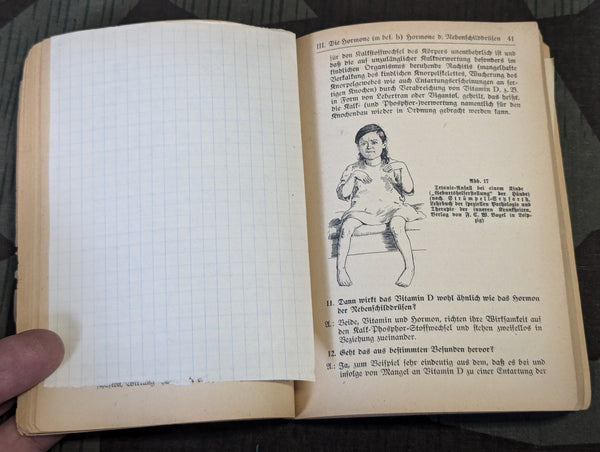 III. Die Hormone im bes. h) Hormone d. Nebenschilddrüsen 41
für den Kalkstoffwechsel des Körpers unentbehrlich ist und
daß die auf unzulänglicher Kalkverwertung besonders im
kindlichen Organismus beruhende Rachitis (mangelhafte
Verkalkung des kindlichen Knorpelskelettes, Wucherung des
Knorpelgewebes wie auch Entartungserscheinungen an fer-
tigen Knochen) durch Verabreichung von Vitamin D, z. B.
in Form von Lebertran oder Vigantol, geheilt, das heißt,
die Kalk- (und Phosphor-)verwertung namentlich für den
Knochenbau wieder in Ordnung gebracht werden kann.
Abb. 17
Tetanie-Anfall bei einem Kinde
(„Geburtshelferstellung“ der Hände)
(nach Strümpell-Seyfarth,
Lehrbuch der speziellen Pathologie und
Therapie der inneren Krankheiten,
Verlag von F. C. W. Vogel in Leip-
zig)
11. Dann wirkt das Vitamin D wohl ähnlich wie das Hormon
der Nebenschilddrüsen?
A.: Beide, Vitamin und Hormon, richten ihre Wirksamkeit auf
den Kalk-Phosphor-Stoffwechsel und stehen zweifellos in
Beziehung zueinander.
12. Geht das aus bestimmten Befunden hervor?
A.: Ja, zum Beispiel sehr eindeutig aus dem, daß es bei und
infolge von Mangel an Vitamin D zu einer Entartung der